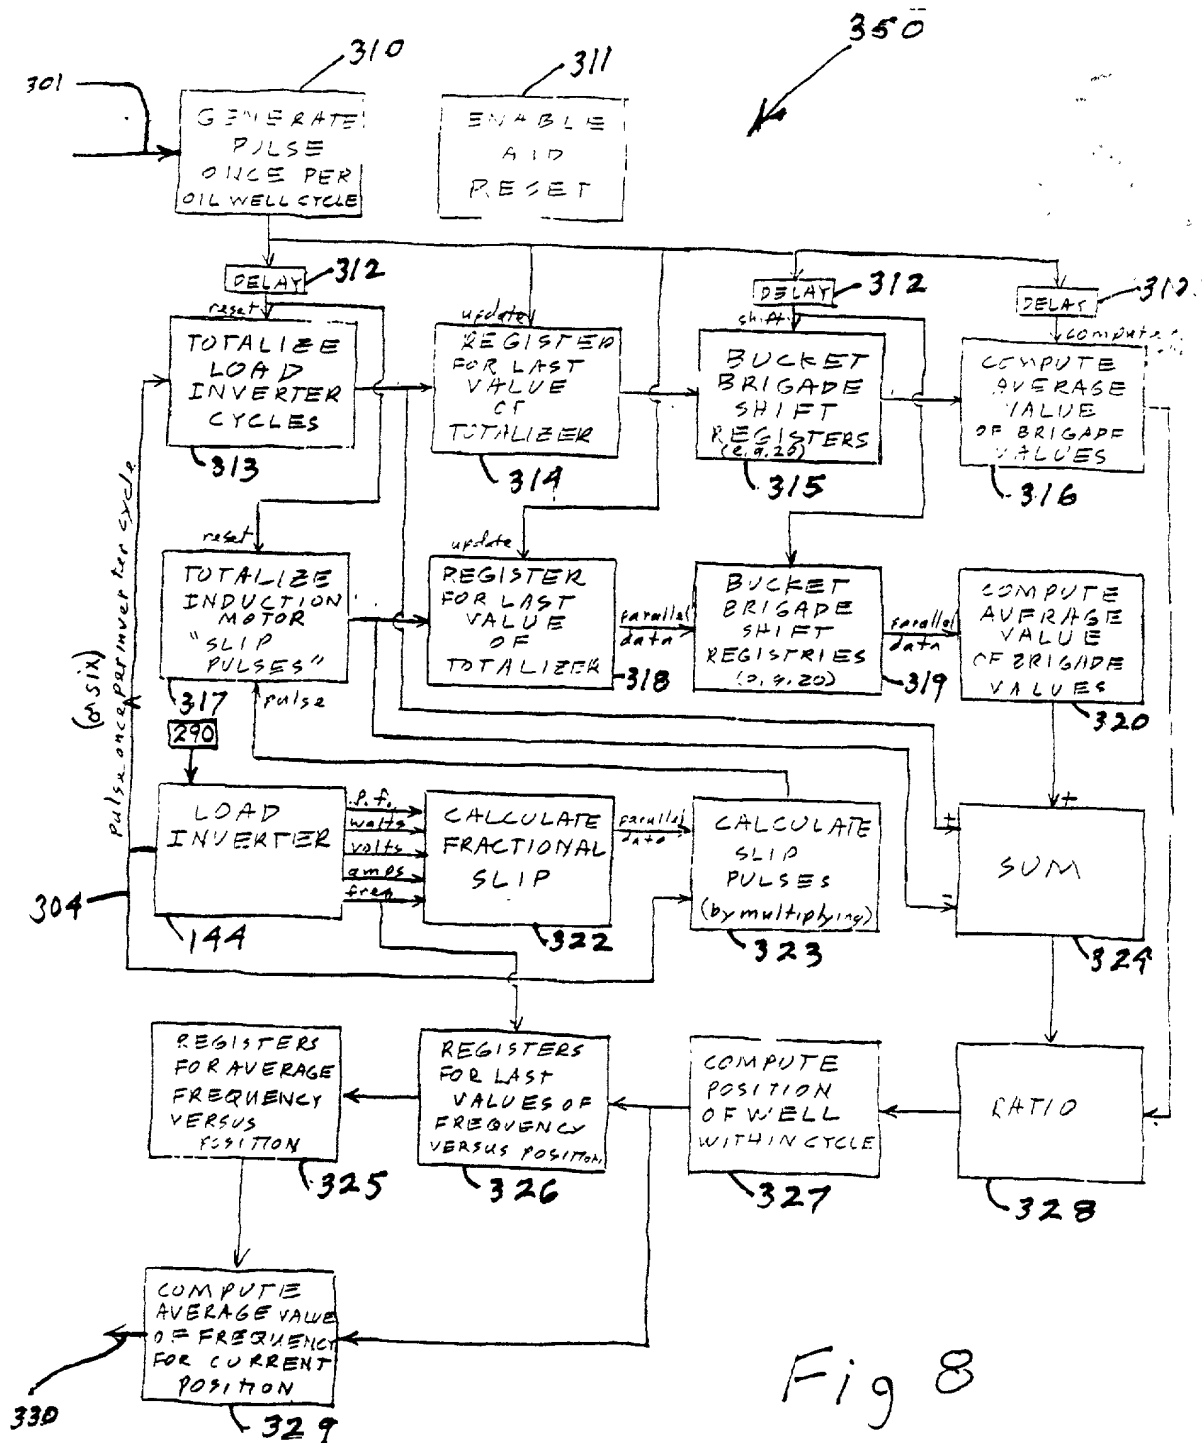 350
310
311
301
GENERATE
PULSE
ONCE PER
OIL WELL CYCLE
ENABLE
AID
RESET
DELAY
312
DELAY
312
DELAY
312
reset
update
shift
compute
TOTALIZE
LOAD
INVERTER
CYCLES
313
REGISTER
FOR LAST
VALUE
OF
TOTALIZER
314
BUCKET
BRIGADE
SHIFT
REGISTERS
(e.g.20)
315
COMPUTE
AVERAGE
VALUE
OF BRIGADE
VALUES
316
reset
update
TOTALIZE
INDUCTION
MOTOR
"SLIP
PULSES"
317
REGISTER
FOR LAST
VALUE
OF
TOTALIZER
318
parallel
data
BUCKET
BRIGADE
SHIFT
REGISTRIES
(e.g.20)
319
parallel
data
COMPUTE
AVERAGE
VALUE
OF BRIGADE
VALUES
320
pulse once per inverter cycle
(or six)
pulse
290
LOAD
INVERTER
144
304
p.f.
watts
volts
amps
freq
CALCULATE
FRACTIONAL
SLIP
322
parallel
data
CALCULATE
SLIP
PULSES
(by multiplying)
323
+
+
-
SUM
324
REGISTERS
FOR AVERAGE
FREQUENCY
VERSUS
POSITION
325
REGISTERS
FOR LAST
VALUES OF
FREQUENCY
VERSUS POSITION
326
COMPUTE
POSITION
OF WELL
WITHIN CYCLE
327
RATIO
328
COMPUTE
AVERAGE VALUE
OF FREQUENCY
FOR CURRENT
POSITION
329
330
Fig 8